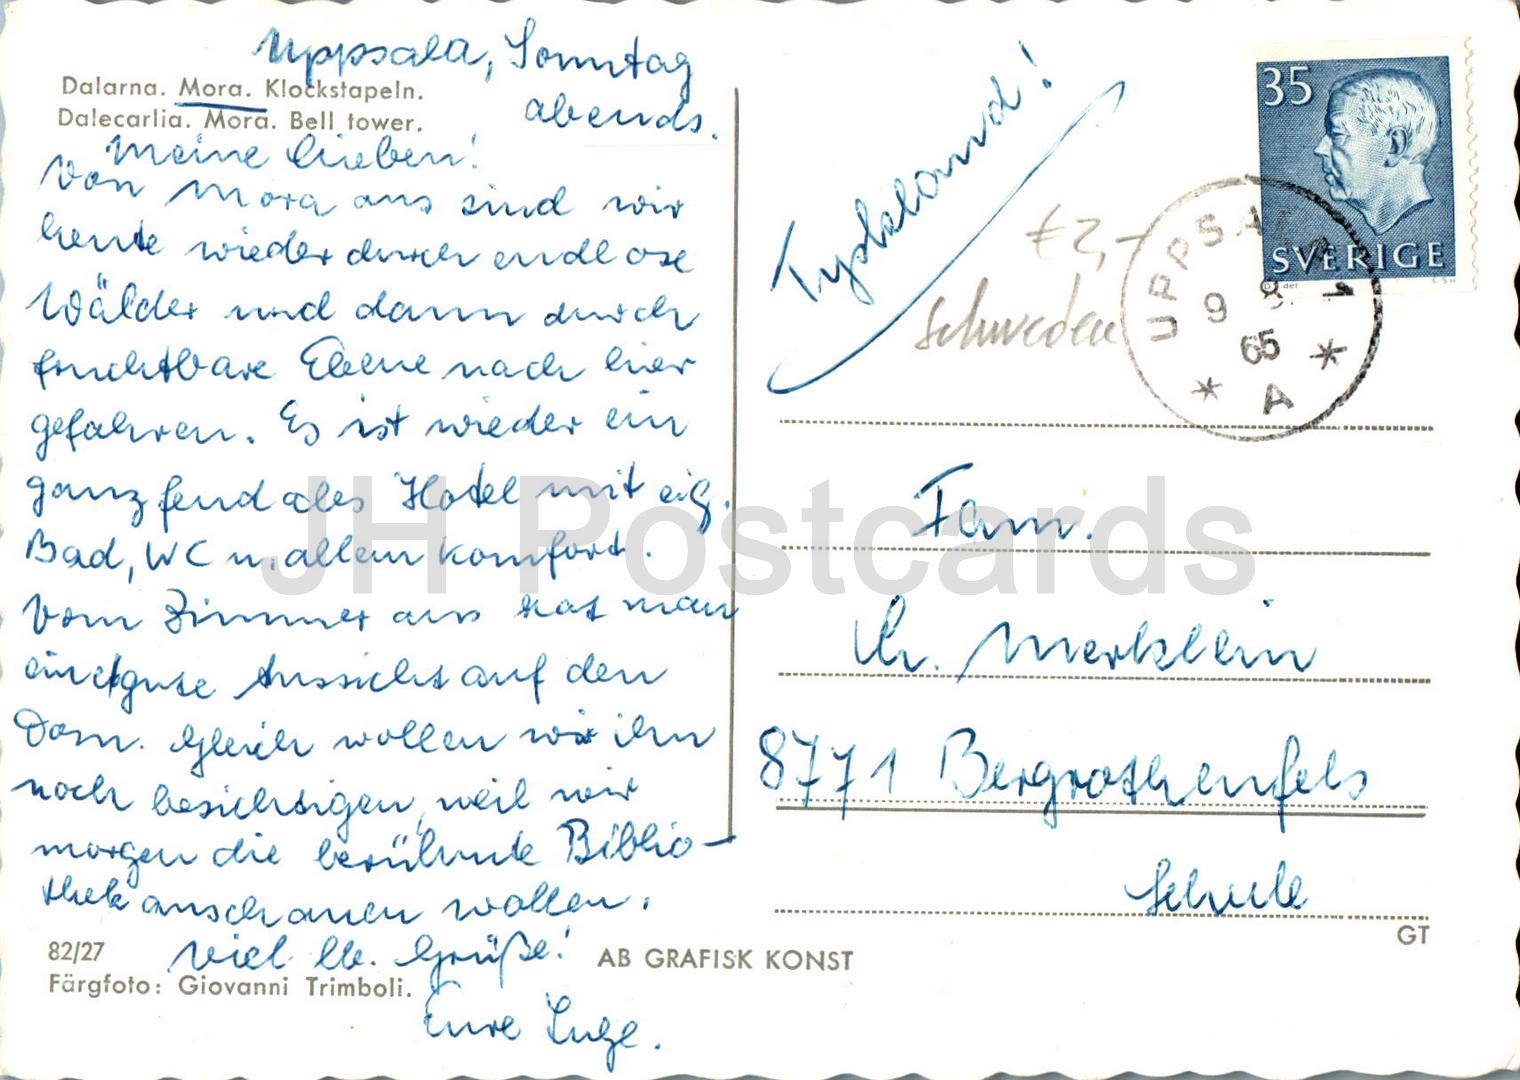 Uppsala, Sonntag
abends.
Dalarna. Mora. Klockstapeln.
Dalecarlia. Mora. Bell tower.
Meine Lieben!
Von Mora aus sind wir
heute wieder durch endlose
Wälder und dann durch
fruchtbare Ebene nach hier
gefahren. Es ist wieder ein
ganz feudales Hotel mit eig.
Bad, WC u. allem Komfort.
Vom Zimmer aus hat man
eine gute Aussicht auf den
Dom. Gleich wollen wir ihn
noch besichtigen, weil wir
morgen die berühmte Biblio-
thek anschauen wollen.
Viel lb. Grüße!
Eure
82/27
Färgfoto: Giovanni Trimboli.
AB GRAFISK KONST
Tyskland!
€2,-
Schweden
35
SVERIGE
UPPSALA 1
9 8
65
* A *
Fam.
Chr. Merklein
8771 Bergrothenfels
Schule
GT
JH Postcards